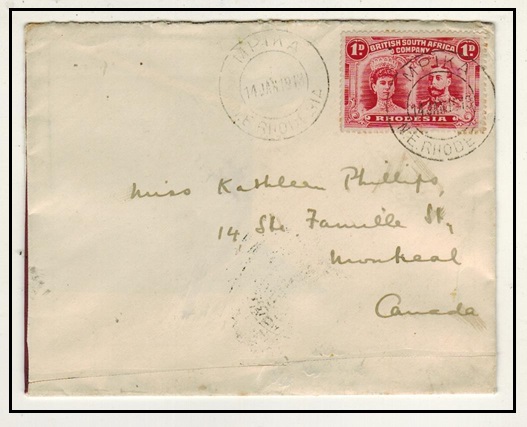 MPIKA
14 JAN 1913
N.E. RHODESIA
1D BRITISH SOUTH AFRICA 1D
COMPANY
RHODESIA
MPIKA
N.E. RHODE
Miss Kathleen Phillips,
14 Ste Famille St,
Montreal
Canada